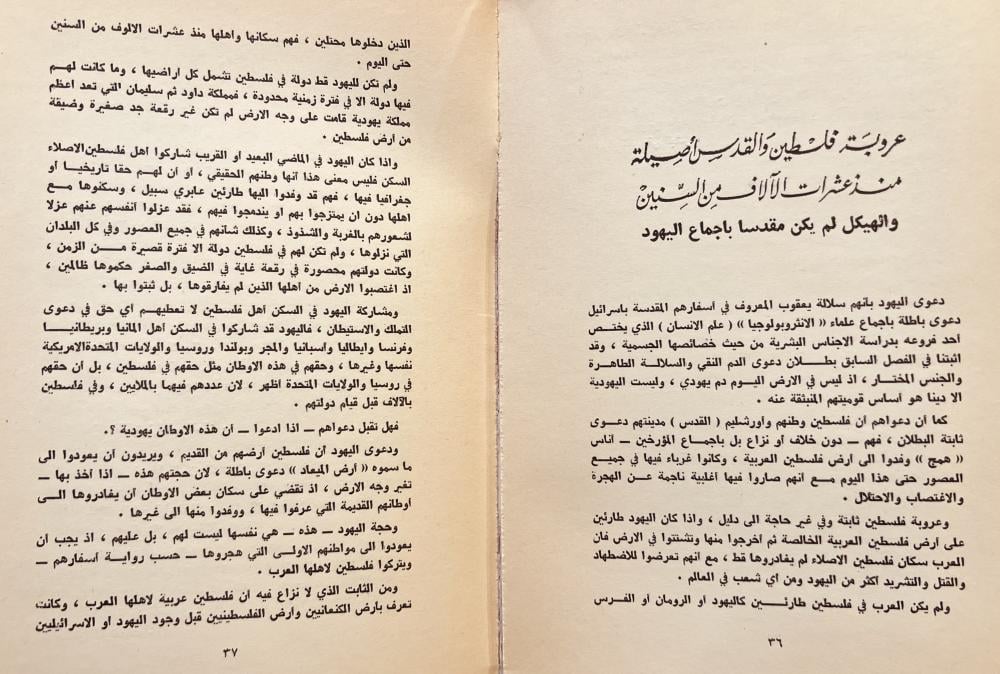 عروبة فلسطين والقدس أصيلة
منذ عشرات الآلاف من السنين
والهيكل لم يكن مقدسا باجماع اليهود
دعوى اليهود بأنهم سلالة يعقوب المعروف في أسفارهم المقدسة باسرائيل
دعوى باطلة باجماع علماء « الانثروبولوجيا » ( علم الانسان ) الذي يختص
احد فروعه بدراسة الاجناس البشرية من حيث خصائصها الجسمية ، وقد
اثبتنا في الفصل السابق بطلان دعوى الدم النقي والسلالة الطاهرة
والجنس المختار ، اذ ليس في الارض اليوم دم يهودي ، وليست اليهودية
الا دينا هو أساس قوميتهم المنبثقة عنه .
كما أن دعواهم أن فلسطين وطنهم وأورشليم ( القدس ) مدينتهم دعوى
ثابتة البطلان ، فهم — دون خلاف أو نزاع بل باجماع المؤرخين — أناس
« همج » وفدوا الى أرض فلسطين العربية ، وكانوا غرباء فيها في جميع
العصور حتى هذا اليوم مع أنهم صاروا فيها أغلبية ناجمة عن الهجرة
والاغتصاب والاحتلال .
وعروبة فلسطين ثابتة وفي غير حاجة الى دليل ، واذا كان اليهود طارئين
على أرض فلسطين العربية الخالصة ثم أخرجوا منها وتشتتوا في الارض فان
العرب سكان فلسطين الاصلاء لم يغادروها قط ، مع أنهم تعرضوا للاضطهاد
والقتل والتشريد أكثر من اليهود ومن أي شعب في العالم .
ولم يكن العرب في فلسطين طارئين كاليهود او الرومان أو الفرس
٣٦
الذين دخلوها محتلين ، فهم سكانها وأهلها منذ عشرات الالوف من السنين
حتى اليوم .
ولم تكن لليهود قط دولة في فلسطين تشمل كل أراضيها ، وما كانت لهم
فيها دولة الا في فترة زمنية محدودة ، فمملكة داود ثم سليمان التي تعد أعظم
مملكة يهودية قامت على وجه الارض لم تكن غير رقعة جد صغيرة وضيقة
من أرض فلسطين .
واذا كان اليهود في الماضي البعيد أو القريب شاركوا أهل فلسطين الاصلاء
السكن فليس معنى هذا أنها وطنهم الحقيقي ، أو أن لهم حقا تاريخيا أو
جغرافيا فيها ، فهم قد وفدوا اليها طارئين عابري سبيل ، وسكنوها مع
اهلها دون أن يمتزجوا بهم أو يندمجوا فيهم ، فقد عزلوا أنفسهم عنهم عزلا
لشعورهم بالغربة والشذوذ ، وكذلك شأنهم في جميع العصور وفي كل البلدان
التي نزلوها ، ولم تكن لهم في فلسطين دولة الا فترة قصيرة من الزمن ،
وكانت دولتهم محصورة في رقعة غاية في الضيق والصغر حكموها ظالمين ،
اذ اغتصبوا الارض من أهلها الذين لم يفارقوها ، بل ثبتوا بها .
ومشاركة اليهود في السكن أهل فلسطين لا تعطيهم أي حق في دعوى
التملك والاستيطان ، فاليهود قد شاركوا في السكن أهل المانيا وبريطانيا
وفرنسا وايطاليا وأسبانيا والمجر وبولندا وروسيا والولايات المتحدة الامريكية
نفسها وغيرها ، وحقهم في هذه الاوطان مثل حقهم في فلسطين ، بل أن حقهم
في روسيا والولايات المتحدة اظهر ، لان عددهم فيهما بالملايين ، وفي فلسطين
بالآلاف قبل قيام دولتهم .
فهل تقبل دعواهم — اذا ادعوا — أن هذه الاوطان يهودية ؟.
ودعوى اليهود أن فلسطين أرضهم من القديم ، ويريدون أن يعودوا الى
ما سموه « أرض الميعاد » دعوى باطلة ، لان حجتهم هذه — اذا أخذ بها —
تغير وجه الارض ، اذ تقضي على سكان بعض الاوطان أن يغادروها الى
أوطانهم القديمة التي عرفوا فيها ، ووفدوا منها الى غيرها .
وحجة اليهود — هذه — هي نفسها ليست لهم ، بل عليهم ، اذ يجب أن
يعودوا الى مواطنهم الاولى التي هجروها — حسب رواية أسفارهم —
ويتركوا فلسطين لاهلها العرب .
ومن الثابت الذي لا نزاع فيه أن فلسطين عربية لاهلها العرب ، وكانت
تعرف بأرض الكنعانيين وأرض الفلسطينيين قبل وجود اليهود او الاسرائيليين
٣٧